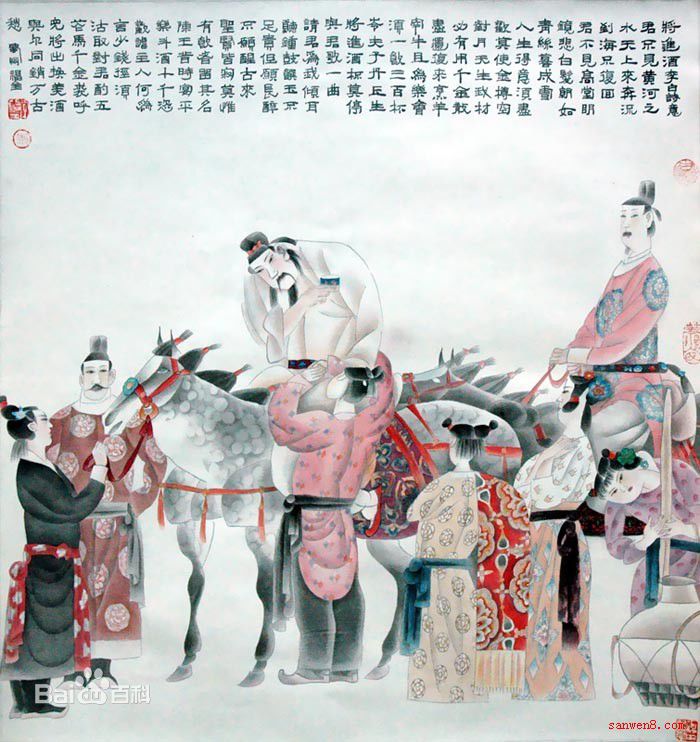 將進酒李白詩意
君不見黃河之
水天上來奔流
到海不復回
君不見高堂明
鏡悲白髮朝如
青絲暮成雪
人生得意須盡
歡莫使金樽空
對月天生我材
必有用千金散
盡還復來烹羊
宰牛且為樂會
須一飲三百杯
岑夫子丹丘生
將進酒杯莫停
與君歌一曲
請君為我傾耳
聽鐘鼓饌玉不
足貴但願長醉
不願醒古來
聖賢皆寂寞惟
有飲者留其名
陳王昔時宴平
樂斗酒十千恣
歡謔主人何為
言少錢徑須
沽取對君酌五
花馬千金裘呼
兒將出換美酒
與爾同銷萬古
愁
Bai百科
sanwen8.com